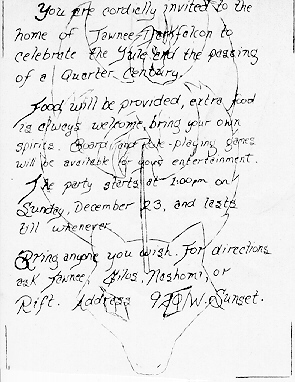 You are cordially invited to the
home of Tawnee Darkfalcon to
celebrate the Yule and the passing
of a Quarter Century.
Food will be provided, extra food
is always welcome, bring your own
spirits. Board and role-playing games
will be available for your entertainment.
The party starts at 1:00pm on
Sunday, December 23, and lasts
till whenever.
Bring anyone you wish. For directions
ask Tawnee, Nashoma, or
Rift. Address W. Sunset.